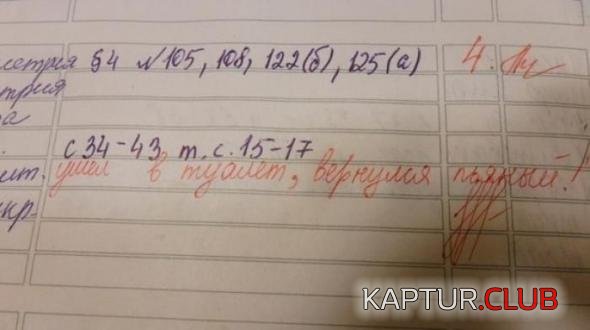 метрия §4 №105, 108, 122(б), 125(а) 4.
трия
а
с 34-43, т. с. 15-17
ит. ушел в туалет, вернулся пьяный!
укр-
KAPTUR.CLUB